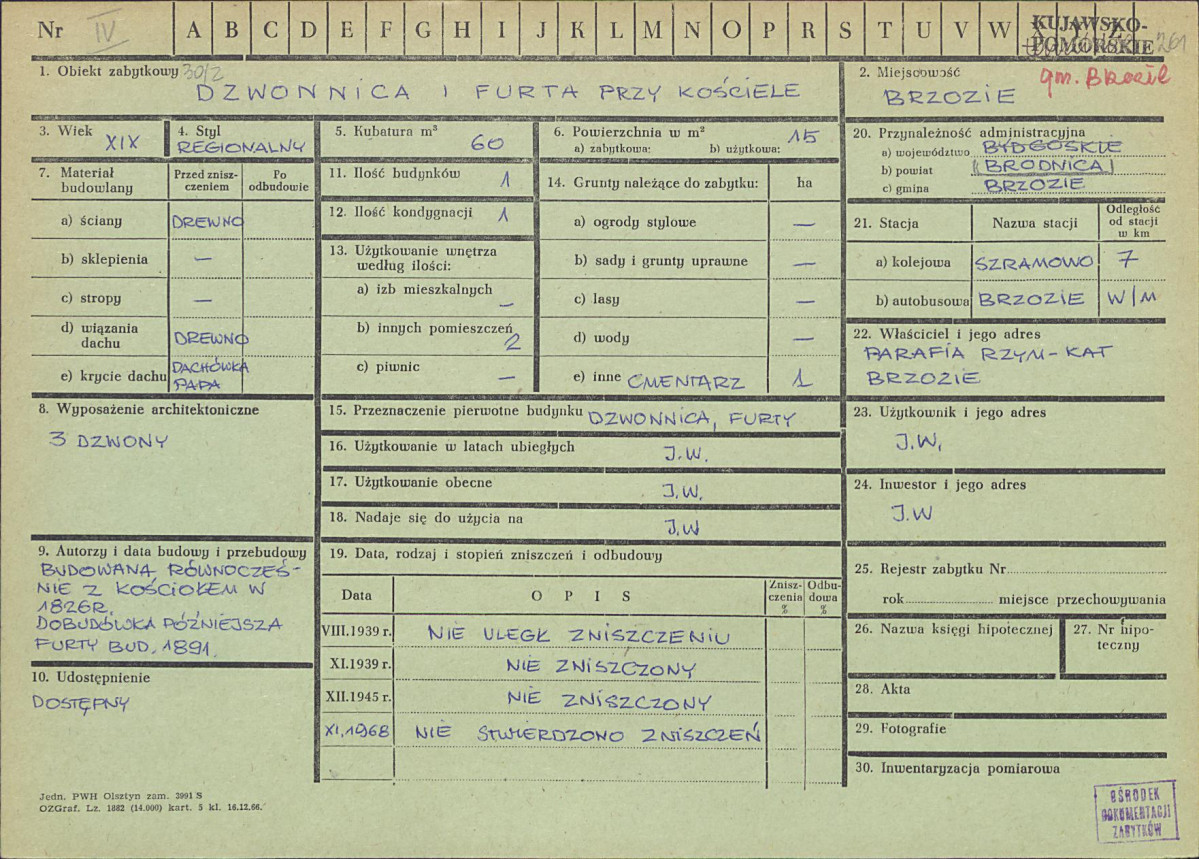 Nr IV A B C D E F G H I J K L M N O P R S T U V W X Y Z
KUJAWSKO-
POMORSKIE 261
1. Obiekt zabytkowy 30/2
DZWONNICA I FURTA PRZY KOŚCIELE
2. Miejscowość gm. Brzozie
BRZOZIE
3. Wiek XIX
4. Styl
REGIONALNY
5. Kubatura m³
60
6. Powierzchnia w m² 15
a) zabytkowa: b) użytkowa:
7. Materiał budowlany
Przed zniszczeniem
Po odbudowie
a) ściany DREWNO
b) sklepienia —
c) stropy —
d) wiązania
dachu DREWNO
e) krycie dachu DACHÓWKA
PAPA
8. Wyposażenie architektoniczne
3 DZWONY
9. Autorzy i data budowy i przebudowy
BUDOWANA RÓWNOCZEŚ-
NIE Z KOŚCIOŁEM W
1826R.
DOBUDÓWKA PÓŹNIEJSZA
FURTY BUD. 1891
10. Udostępnienie
DOSTĘPNY
11. Ilość budynków 1
12. Ilość kondygnacji 1
13. Użytkowanie wnętrza
według ilości:
a) izb mieszkalnych —
b) innych pomieszczeń 2
c) piwnic —
14. Grunty należące do zabytku: ha
a) ogrody stylowe —
b) sady i grunty uprawne —
c) lasy —
d) wody —
e) inne CMENTARZ 1
15. Przeznaczenie pierwotne budynku DZWONNICA, FURTY
16. Użytkowanie w latach ubiegłych J.W.
17. Użytkowanie obecne J.W.
18. Nadaje się do użycia na J.W
19. Data, rodzaj i stopień zniszczeń i odbudowy
Data O P I S Zniszczenia % Odbudowa %
VIII.1939 r. NIE ULEGŁ ZNISZCZENIU
XI.1939 r. NIE ZNISZCZONY
XII.1945 r. NIE ZNISZCZONY
XI.1968 NIE STWIERDZONO ZNISZCZEŃ
20. Przynależność administracyjna
a) województwo BYDGOSKIE
b) powiat BRODNICA
c) gmina BRZOZIE
21. Stacja Nazwa stacji Odległość od stacji w km
a) kolejowa SZRAMOWO 7
b) autobusowa BRZOZIE W/M
22. Właściciel i jego adres
PARAFIA RZYM-KAT
BRZOZIE
23. Użytkownik i jego adres
J.W.
24. Inwestor i jego adres
J.W
25. Rejestr zabytku Nr
rok miejsce przechowywania
26. Nazwa księgi hipotecznej
27. Nr hipo-
teczny
28. Akta
29. Fotografie
30. Inwentaryzacja pomiarowa
Jedn. PWH Olsztyn zam. 3991 S
OZGraf. Lz. 1882 (14.000) kart. 5 kl. 16.12.66.
OŚRODEK
DOKUMENTACJI
ZABYTKÓW